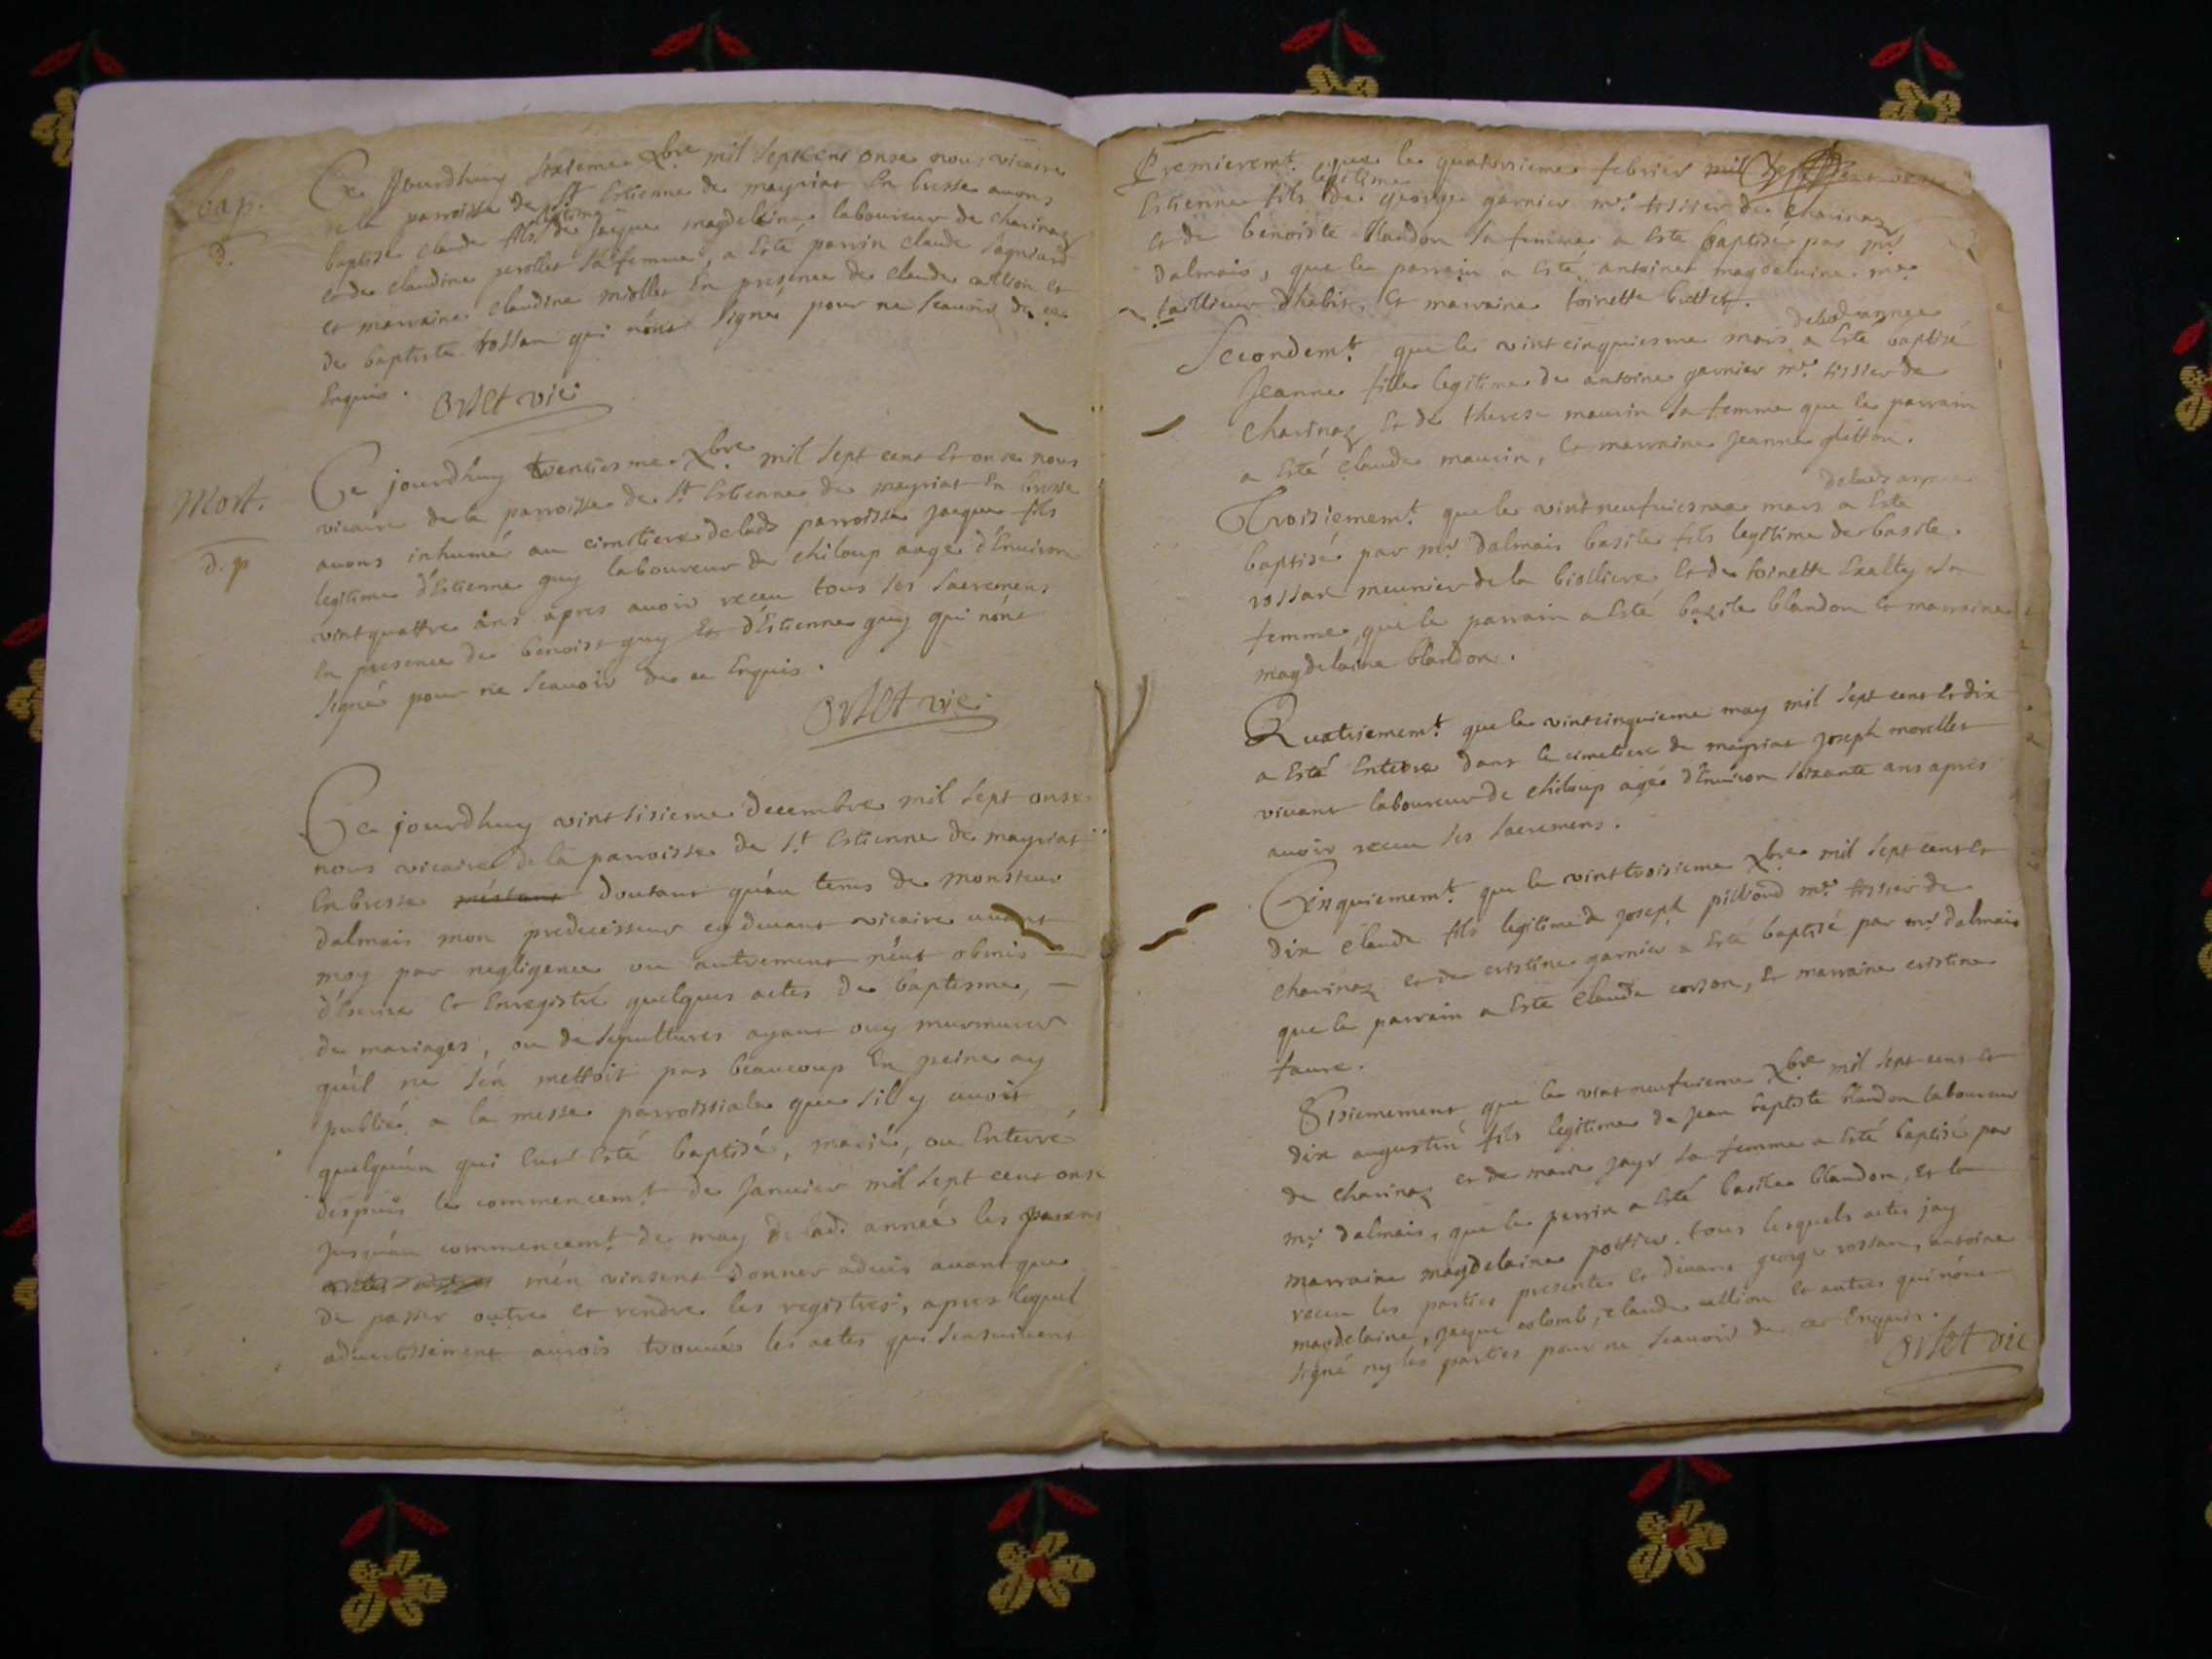 bap.
d.
Ce Jourdhuy sixieme xbre mil sept cent onse nous vicaire
de la parroisse de St Estienne de mayriat En bresse avons
legitime
baptisé claude fils de Jacque magdelaine laboureur de charinaz
et de claudine perollet sa femme, a Esté parrin claude
et marraine claudine miollet En presence de claude et
de baptiste rossan qui nónt signé pour ne scauoir de ce
Enquis. Orset vic
Mort.
d. p
Ce jourdhuy trentiesme xbre mil sept cent Et onse nous
vicaire de la parroisse de St Estienne de mayriat En bresse
auons inhumé au cimitiere de lade parroisse jacque fils
legitime d'Estienne guy laboureur de chiloup aagé d'Enuiron
vint quattre ans apres auoir receu tous ses sacremens
En presence de benoist guy Et d'Estienne guy qui nónt
signé pour ne scauoir de ce Enquis.
Orset vic
Ce jourdhuy vint sisieme decembre mil sept onse
nous vicaire de la parroisse de St Estienne de mayriat
En bresse doutant qu'au tems de monsieur
dalmais mon predecesseur cy deuant vicaire auant
moy par negligence ou autrement n'eut obmis
d'Escrire Et Enregistré quelques actes de baptesme,
de mariages, ou de sepultures ayant ouy murmurer
qu'il ne s'en mettoit pas beaucoup En peine ay
publié a la messe parroissiale que s'il y auoit
quelqu'un qui Eut Esté baptisé, marié, ou Enterré
despuis le commencemt de Januier mil sept cent onse
jusqu'au commencemt de may de lad. année les parens
m'en vinsent donner aduis auant que
de passer outre et rendre les registres, apres lequel
aduertissement aurois trouué les actes qui sensuiuent
Premieremt que le quatorsieme febrier mil
legitime
Estienne fils de george garnier mre tissier de charinaz
Et de benoiste blandon sa femme a Esté baptisé par mr
dalmais, que le parrain a Esté antoine magdelaine mre
taillieur d'habit, Et marraine toinette
de lad annee
Secondemt que le vint cinquiesme mars a Esté baptisé
Jeanne fille legitime de antoine garnier mre tissier de
charinaz Et de therese maurin sa femme que le parrain
a Esté claude maurin, Et marraine Jeanne
de lad annee
Troisiememt que le vint neufuiesme mars a Esté
baptisé par mr dalmais basile fils legitime de basile
rossan meunier de la biolliere Et de toinette sa
femme, que le parrain a Esté basile blandon Et marraine
magdelaine blandon.
Quatriememt que le vint cinquieme may mil sept cent Et dix
a Esté Enterré dans le cimetiere de mayriat joseph morellet
viuant laboureur de chiloup agé d'Enuiron soixante ans apres
auoir receu ses sacremens.
Cinquiememt que le vint troisieme xbre mil sept cent Et
dix claude fils legitime de joseph pilliod mre tissier de
charinaz et de cristine garnier a Esté baptisé par mr dalmais
que le parrain a Esté claude corson, Et marraine cristine
faure.
Sisiemement que le vint neufuieme xbre mil sept cent Et
dix augustin fils legitime de jean baptiste blandon laboureur
de charinaz et de marie jayr sa femme a Esté baptisé par
mr dalmais, que le perrin a Esté basile blandon, et la
marraine magdelaine pottier. tous lesquels actes jay
receu les parties presentes Et deuant george rossan, antoine
magdelaine, jacque colomb, claude Et autres qui nónt
signé ny les parties pour ne scauoir de ce Enquis.
Orset vic